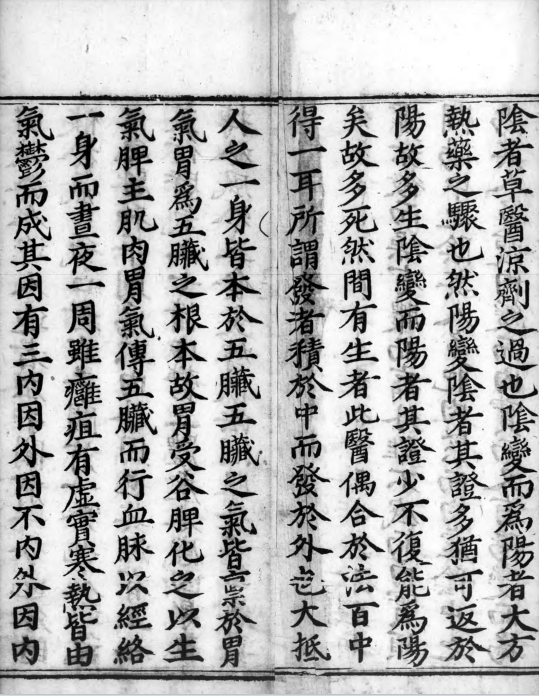 陰者草醫涼劑之過也陰變而爲陽者大方
熱藥之驟也然陽變陰者其證多猶可返於
陽故多生陰變而陽者其證少不復能爲陽
矣故多死然間有生者此醫偶合於法百中
得一耳所謂發者積於中而發於外也大抵
人之一身皆本於五臟五臟之氣皆禀於胃
氣胃爲五臟之根本故胃受谷脾化之以生
氣脾主肌肉胃氣傳五臟而行血脉以經絡
一身而晝夜一周雖癰疽有虛實寒熱皆由
氣鬱而成其因有三内因外因不内外因内